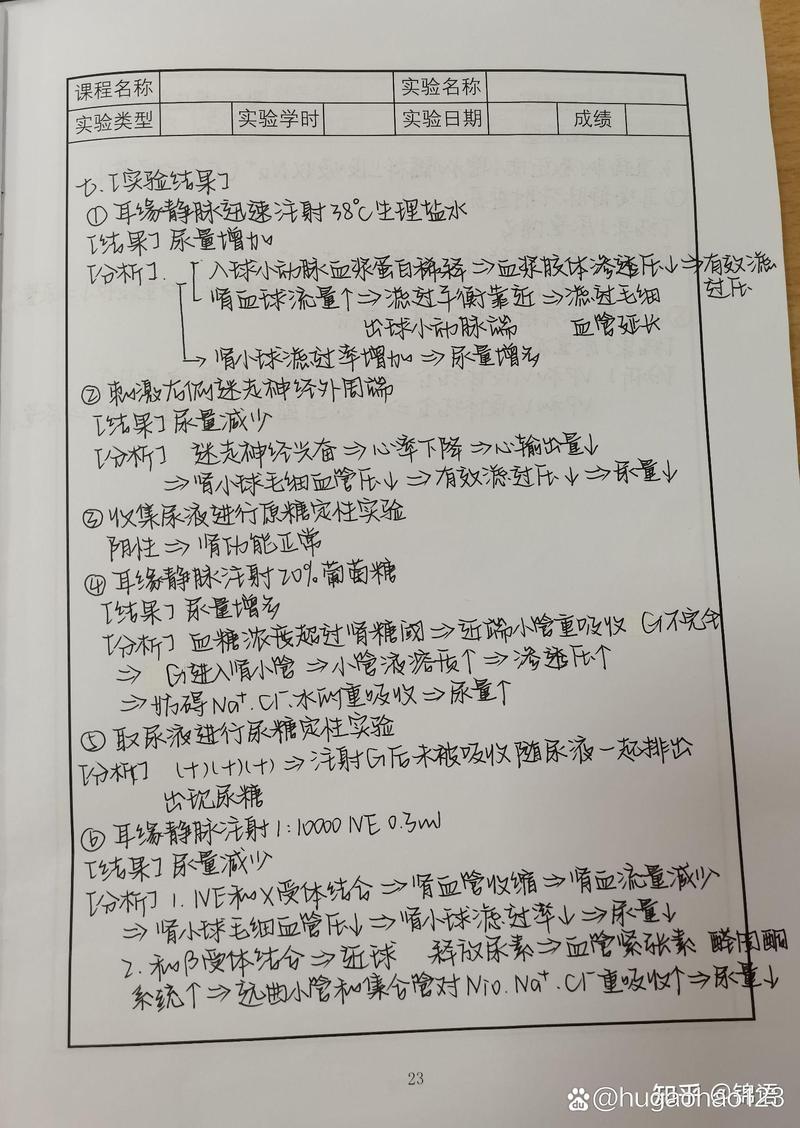 课程名称 实验名称
实验类型 实验学时 实验日期 成绩
七.[实验结果]
① 耳缘静脉迅速注射38℃生理盐水
[结果] 尿量增加
[分析]. 入球小动脉血浆蛋白稀释⇒血浆胶体渗透压↓⇒有效滤过压
肾血球流量↑⇒滤过平衡靠近⇒滤过毛细
出球小动脉端 血管延长
→肾小球滤过率增加⇒尿量增多
② 刺激右侧迷走神经外周端
[结果] 尿量减少
[分析] 迷走神经兴奋⇒心率下降⇒心输出量↓
⇒肾小球毛细血管压↓⇒有效滤过压↓⇒尿量↓
③ 收集尿液进行原糖定性实验
阴性⇒肾功能正常
④ 耳缘静脉注射20%葡萄糖
[结果] 尿量增多
[分析] 血糖浓度超过肾糖阈⇒近端小管重吸收 G不完全
⇒ G进入肾小管⇒小管液溶质↑⇒渗透压↑
⇒妨碍Na⁺.Cl⁻.水的重吸收⇒尿量↑
⑤ 取尿液进行尿糖定性实验
[分析] (+)(+)(+)⇒注射G后未被吸收随尿液一起排出
出现尿糖
⑥ 耳缘静脉注射1:10000 NE 0.3ml
[结果] 尿量减少
[分析] 1. NE和α受体结合⇒肾血管收缩⇒肾血流量减少
⇒肾小球毛细血管压↓⇒肾小球滤过率↓⇒尿量↓
2. 和β受体结合⇒近球 释放尿素⇒血管紧张素 醛固酮
系统↑⇒远曲小管和集合管对 Na⁺.Cl⁻重吸收↑⇒尿量↓
23
知乎 @锦语
@hugaohao123